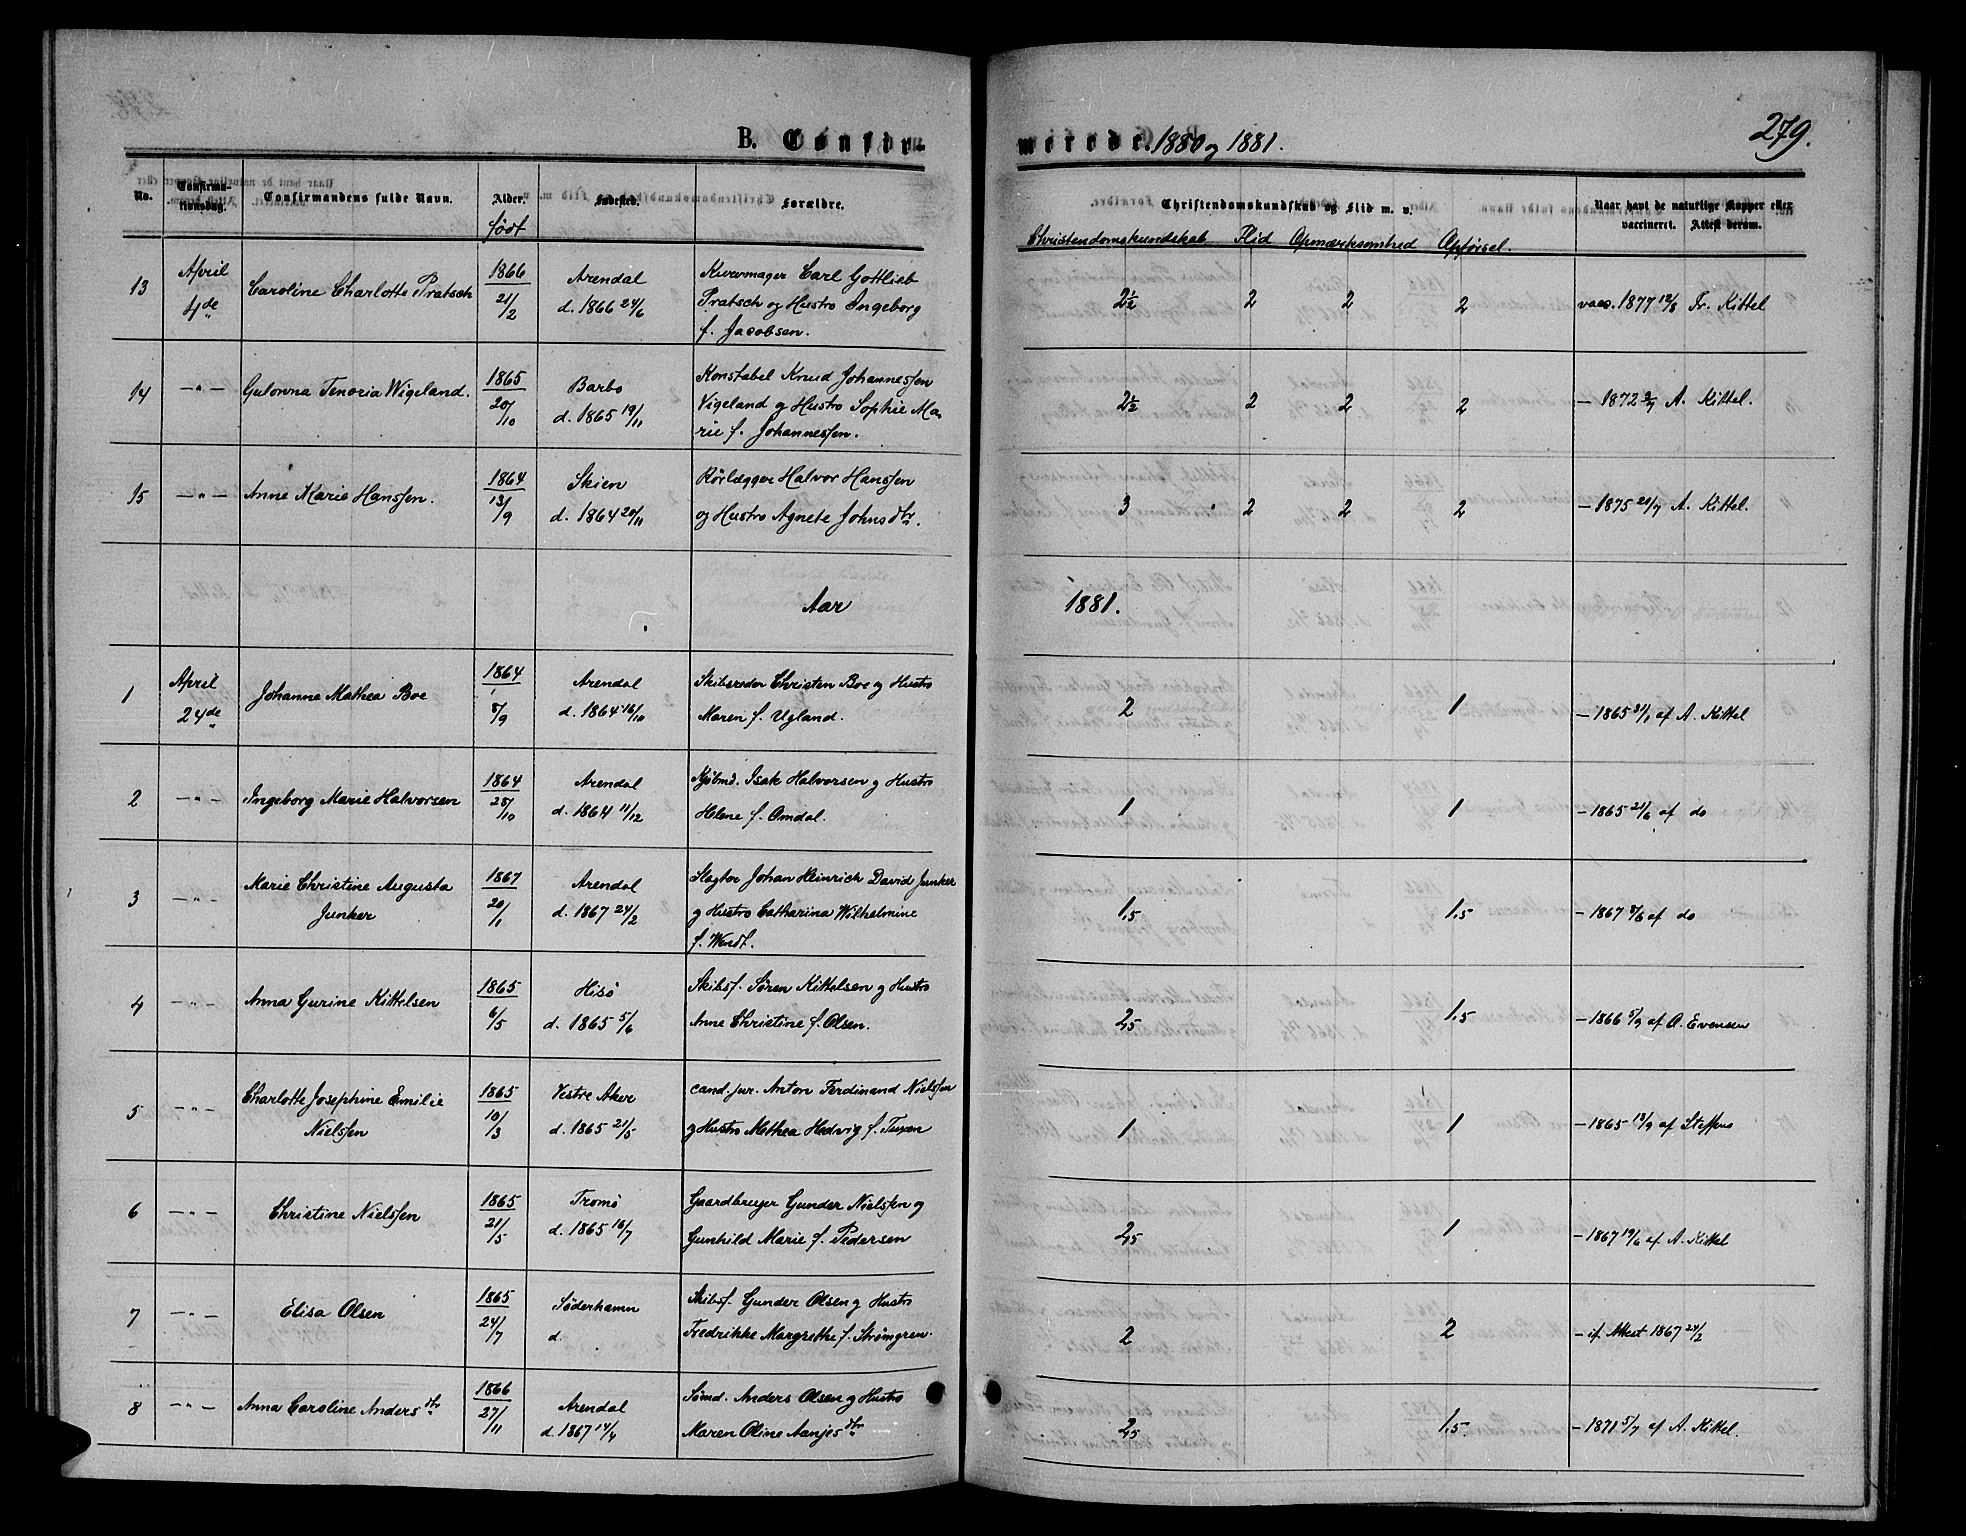 279.
B. Confirmerede. 1880 og 1881.
No. Confirmationsdag. Confirmandens fulde Navn. Alder. født Fødested. Forældre. Christendomskundskab og Flid m. v. Naar havt de naturlige Kopper eller vaccineret. Attest derom.
Christendomskundskab Flid Opmærksomhed Opførsel.
13 April 4de Caroline Charlotte Pratsch 1866 21/2 Arendal d. 1866 24/6 Kurvmager Carl Gottlieb
Pratsch og Hustro Ingeborg
f. Jacobsen. 2½ 2 2 2 vacc. 1877 12/8 Fr. Kittel
14 —"— Gulowna Tenoria Wigeland. 1865 20/10 Barbo d. 1865 19/11 Konstabel Knud Johannessen
Vigeland og Hustro Sophie Ma-
rie f. Johannessen. 2½ 2 2 2 — 1872 2/7 A. Kittel.
15 —"— Anne Marie Hanssen. 1864 13/9 Skien d. 1864 20/11 Rørlægger Halvor Hanssen
og Hustro Agnete Johnsdtr. 3 2 2 2 — 1875 21/7 A. Kittel.
Aar 1881.
1 April 24de Johanne Mathea Boe 1864 8/9 Arendal d. 1864 16/10 Skibsreder Christen Boe og Hustro
Maren f. Ugland. 2 1 — 1865 31/1 af A. Kittel
2 —"— Ingeborg Marie Halvorsen 1864 28/10 Arendal d. 1864 11/12 Kjøbmd. Isak Halvorsen og Hustro
Helene f. Omdal. 1 1 — 1865 21/6 af do
3 —"— Marie Christine Augusta
Junker 1867 20/1 Arendal d. 1867 24/2 Slagter Johan Heinrich David Junker
og Hustro Catharina Wilhelmine
f. Wendt. 1,5 1,5 — 1867 8/6 af do
4 —"— Anna Gurine Kittelsen 1865 6/5 Hisö d. 1865 5/6 Skibsf. Søren Kittelsen og Hustro
Anne Christine f. Olsen. 2,5 1,5 — 1866 5/9 af O. Evensen
5 —"— Charlotte Josephine Emilie
Nielssen 1865 10/3 Vestre Aker d. 1865 21/5 cand. jur. Anton Ferdinand Nielssen
og Hustro Mathea Hedvig f. Tuxen 1 1 — 1865 13/9 af Steffens
6 —"— Christine Nielssen 1865 21/5 Tromö d. 1865 16/7 Gaardbruger Gunder Nielssen og
Gunhild Marie f. Pedersen 2,5 1 — 1867 19/6 af A. Kittel
7 —"— Elisa Olsen 1865 24/7 Söderhamn d. Skibsf. Gunder Olsen og Hustro
Fredrikke Margrethe f. Strømgren. 2 2 — if. Attest 1867 24/2
8 —"— Anna Caroline Andersdtr 1866 27/11 Arendal d. 1867 14/4 Sømd. Anders Olsen og Hustro
Maren Oline Aanjesdtr 2,5 1,5 — 1871 5/7 af A. Kittel.